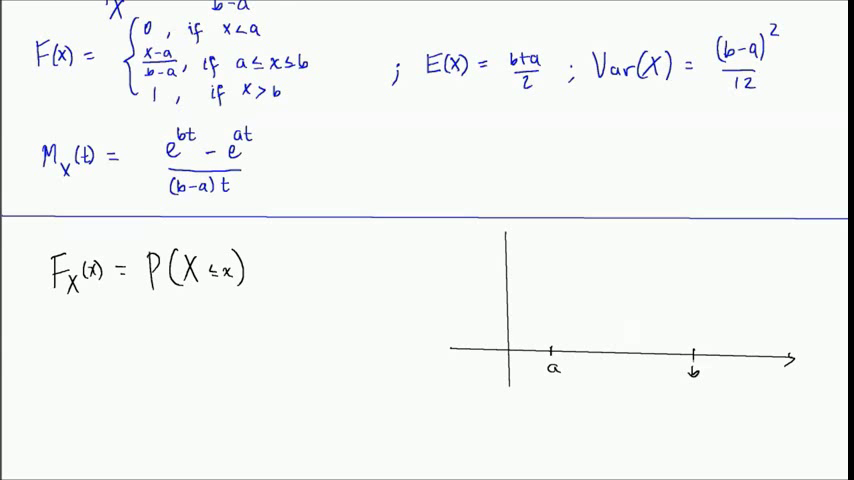 X b-a
F(x) = { 0 , if x<a
x-a/b-a , if a≤x≤b
1 , if x>b
; E(X) = b+a/2 ; Var(X) = (b-a)²/12
M_X(t) = e^bt - e^at/(b-a)t
F_X(x) = P(X≤x)
a b